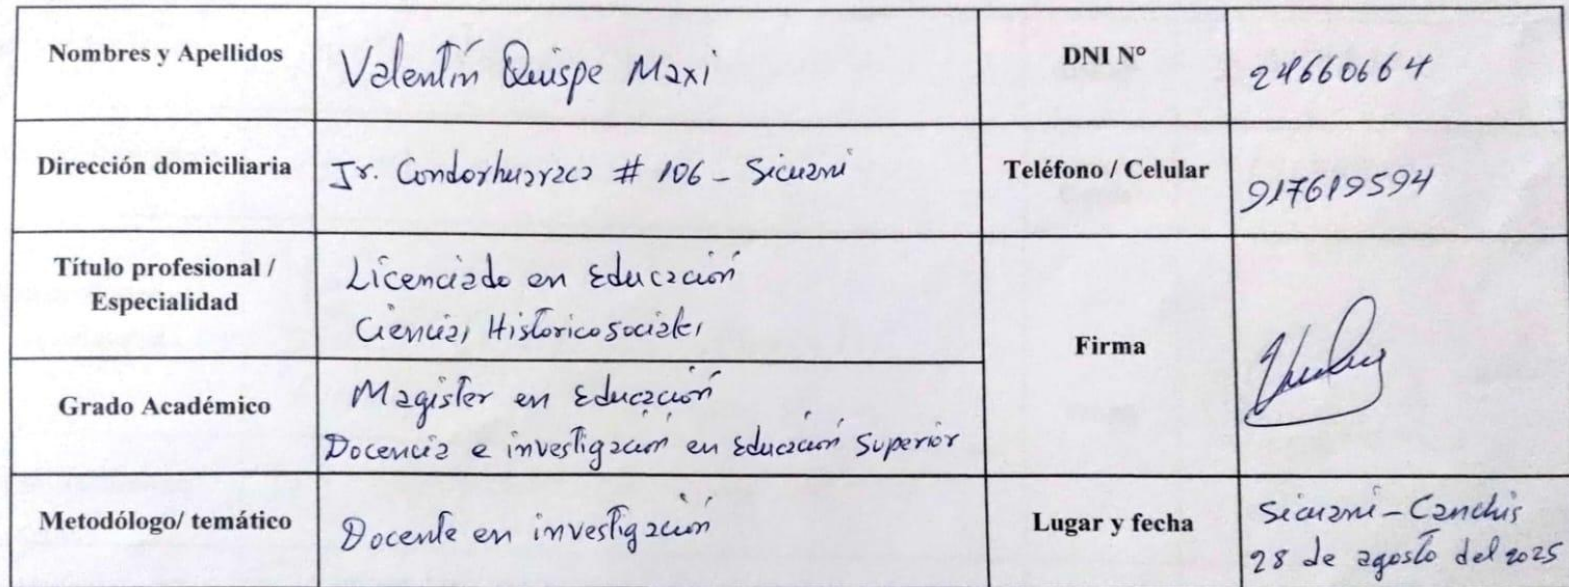 Nombres y Apellidos
Valentín Quispe Maxi
DNI N°
24660664
Dirección domiciliaria
Jr. Condorhuaraca # 106 - Sicuani
Teléfono / Celular
917619594
Título profesional /
Especialidad
Licenciado en Educación
Ciencias Historico sociales
Firma
Grado Académico
Magister en Educación
Docencia e investigación en Educación Superior
Metodólogo/ temático
Docente en investigación
Lugar y fecha
Sicuani - Canchis
28 de agosto del 2025